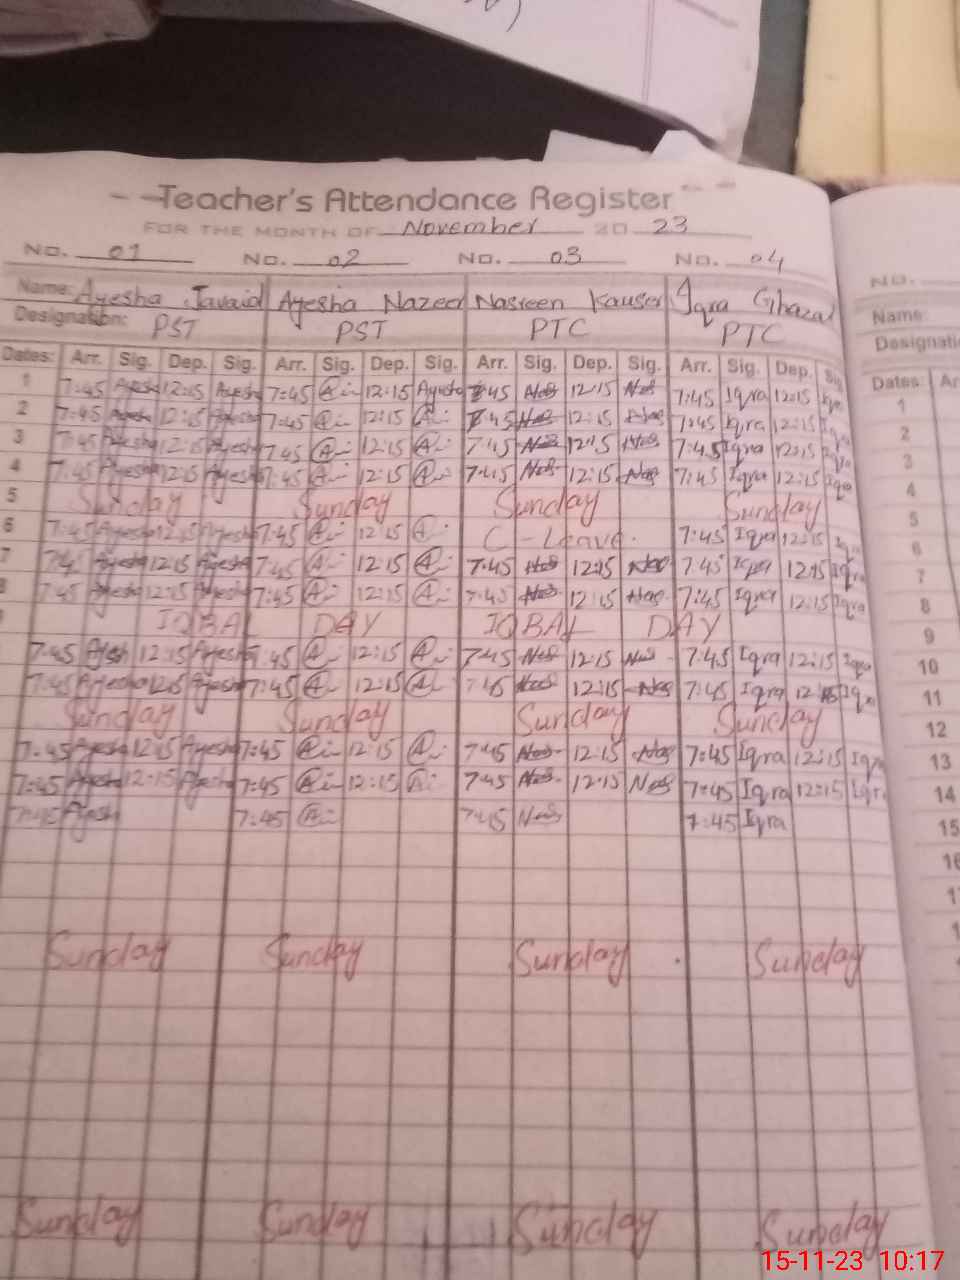 Teacher's Attendance Register
FOR THE MONTH OF November 20 23
No. 01 No. 02 No. 03 No. 04 No.
Name: Ayesha Javaid Ayesha Nazeer Nasreen Kauser Iqra Ghazal Name:
Designation: PST PST PTC PTC
Dates: Arr. Sig. Dep. Sig. Arr. Sig. Dep. Sig. Arr. Sig. Dep. Sig. Arr. Sig. Dep. Sig. Dates:
1 7:45 Ayesha 12:15 Ayesha 7:45 12:15 Ayesha 7:45 Nas 12:15 Nas 7:45 Iqra 12:15 Iqra 1
2 7:45 Ayesha 12:15 Ayesha 7:45 12:15 7:45 Nas 12:15 Nas 7:45 Iqra 12:15 Iqra 2
3 7:45 Ayesha 12:15 Ayesha 7:45 12:15 7:45 Nas 12:15 Nas 7:45 Iqra 12:15 Iqra 3
4 7:45 Ayesha 12:15 Ayesha 7:45 12:15 7:45 Nas 12:15 Nas 7:45 Iqra 12:15 Iqra 4
5 Sunday Sunday Sunday Sunday 5
6 7:45 Ayesha 12:15 Ayesha 7:45 12:15 C-Leave. 7:45 Iqra 12:15 Iqra 6
7 7:45 Ayesha 12:15 Ayesha 7:45 12:15 7:45 Nas 12:15 Nas 7:45 Iqra 12:15 Iqra 7
8 7:45 Ayesha 12:15 Ayesha 7:45 12:15 7:45 Nas 12:15 Nas 7:45 Iqra 12:15 Iqra 8
IQBAL DAY IQBAL DAY 9
7:45 Ayesh 12:15 Ayesha 7:45 12:15 7:45 Nas 12:15 Nas 7:45 Iqra 12:15 Iqra 10
7:45 Ayesha 12:15 Ayesha 7:45 12:15 7:45 Nas 12:15 Nas 7:45 Iqra 12:15 Iqra 11
Sunday Sunday Sunday Sunday 12
7:45 Ayesha 12:15 Ayesha 7:45 12:15 7:45 Nas 12:15 Nas 7:45 Iqra 12:15 Iqra 13
7:45 Ayesha 12:15 Ayesha 7:45 12:15 7:45 Nas 12:15 Nas 7:45 Iqra 12:15 Iqra 14
7:45 Ayesh 7:45 7:45 Nas 7:45 Iqra 15
16
Sunday Sunday Sunday Sunday
Sunday Sunday Sunday Sunday
15-11-23 10:17